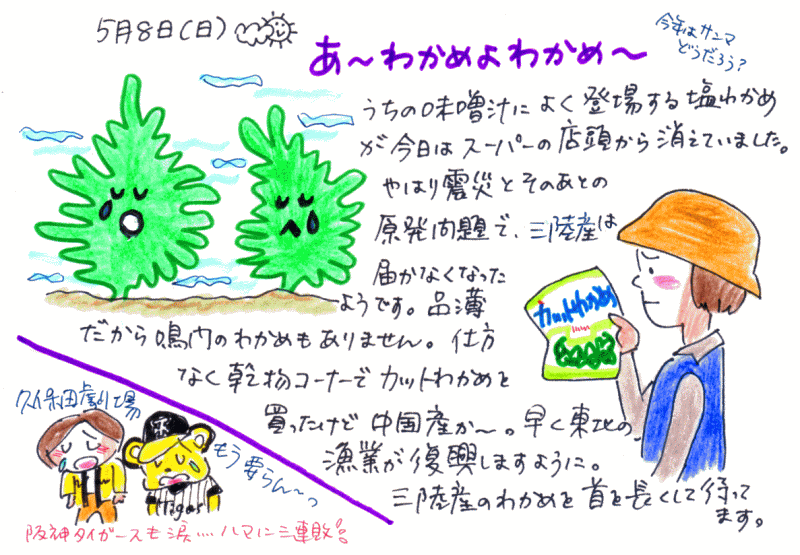 5月8日(日)
あ〜わかめよわかめ〜
今年はサンマ
どうだろう?
うちの味噌汁によく登場する塩わかめ
が今日はスーパーの店頭から消えていました。
やはり震災とそのあとの
原発問題で、三陸産は
届かなくなった
ようです。品薄
だから鳴門のわかめもありません。仕方
なく乾物コーナーでカットわかめを
買ったけど中国産か〜。早く東北の
漁業が復興しますように。
三陸産のわかめを首を長くして待って
ます。
カットわかめ
久保田劇場
もう要らん〜っ
Tigers
阪神タイガースも涙……ハマに三連敗!